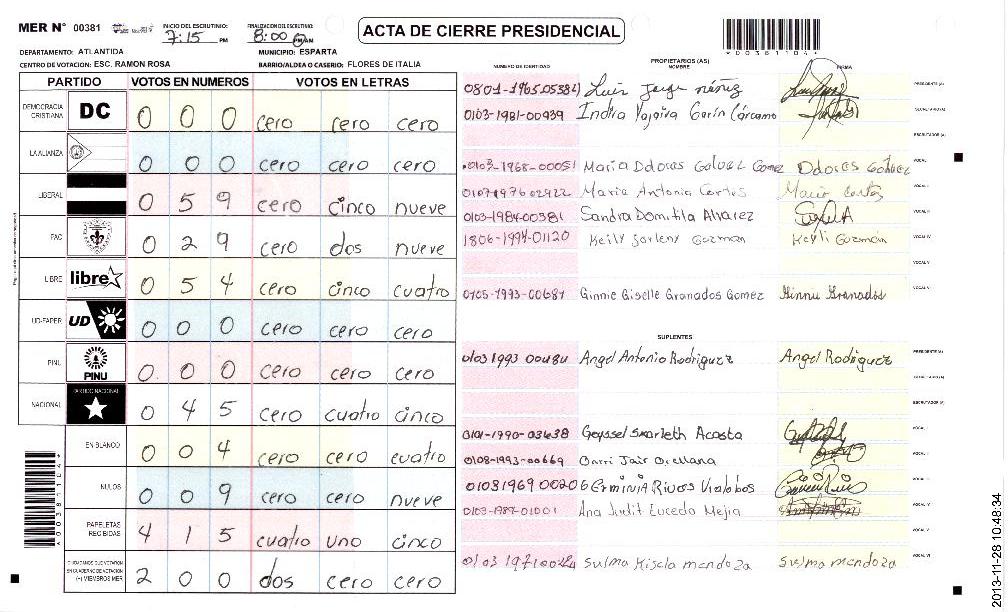 MER N° 00381
INICIO DEL ESCRUTINIO: 7:15 PM
FINALIZACION DEL ESCRUTINIO: 8:00 PM AM
ACTA DE CIERRE PRESIDENCIAL
*00381104*
DEPARTAMENTO: ATLANTIDA
MUNICIPIO: ESPARTA
CENTRO DE VOTACION: ESC. RAMON ROSA
BARRIO/ALDEA O CASERIO: FLORES DE ITALIA
PARTIDO VOTOS EN NUMEROS VOTOS EN LETRAS
DEMOCRACIA CRISTIANA DC 0 0 0 cero cero cero
LA ALIANZA 0 0 0 cero cero cero
LIBERAL 0 5 9 cero cinco nueve
PAC 0 2 9 cero dos nueve
LIBRE libre 0 5 4 cero cinco cuatro
UD-FAPER UD 0 0 0 cero cero cero
PINU PINU 0 0 0 cero cero cero
NACIONAL PARTIDO NACIONAL 0 4 5 cero cuatro cinco
EN BLANCO 0 0 4 cero cero cuatro
NULOS 0 0 9 cero cero nueve
PAPELETAS RECIBIDAS 4 1 5 cuatro uno cinco
CIUDADANOS QUE VOTARON EN CUADERNO DE VOTACION (+) MIEMBROS MER 2 0 0 dos cero cero
*00381104*
PROPIETARIOS (AS)
NUMERO DE IDENTIDAD NOMBRE FIRMA
Luis Jorge Núñez PRESIDENTE (A)
0103-1981-00939 Indira Yojaira Garín Cárcamo SECRETARIO (A)
ESCRUTADOR (A)
0103-1968-00051 Maria Dolores Galvez Gomez Dolores Galvez VOCAL I
0107197602922 Maria Antonia Cortes Maria Cortes VOCAL II
0103-1984-00381 Sandra Domitila Alvarez VOCAL III
1806-1994-01120 Keily Sorleny Guzman Keyli Guzmán VOCAL IV
VOCAL V
0105-1993-00687 Ginnie Giselle Granados Gomez Ginnie Granados VOCAL VI
SUPLENTES
0103 1993 00484 Angel Antonio Rodriguez Angel Rodriguez PRESIDENTE (A)
SECRETARIO (A)
ESCRUTADOR (A)
0101-1990-03638 Geyssel Skarleth Acosta VOCAL I
0108-1993-00669 Darri Jair Orellana VOCAL II
0103196900206 Erminia Rivas Vialobos VOCAL III
0103-1987-01001 Ana Judit Lucedo Mejia VOCAL IV
VOCAL V
Sulma Kisela mendoza Sulma mendoza VOCAL VI
2013-11-28 10:48:34